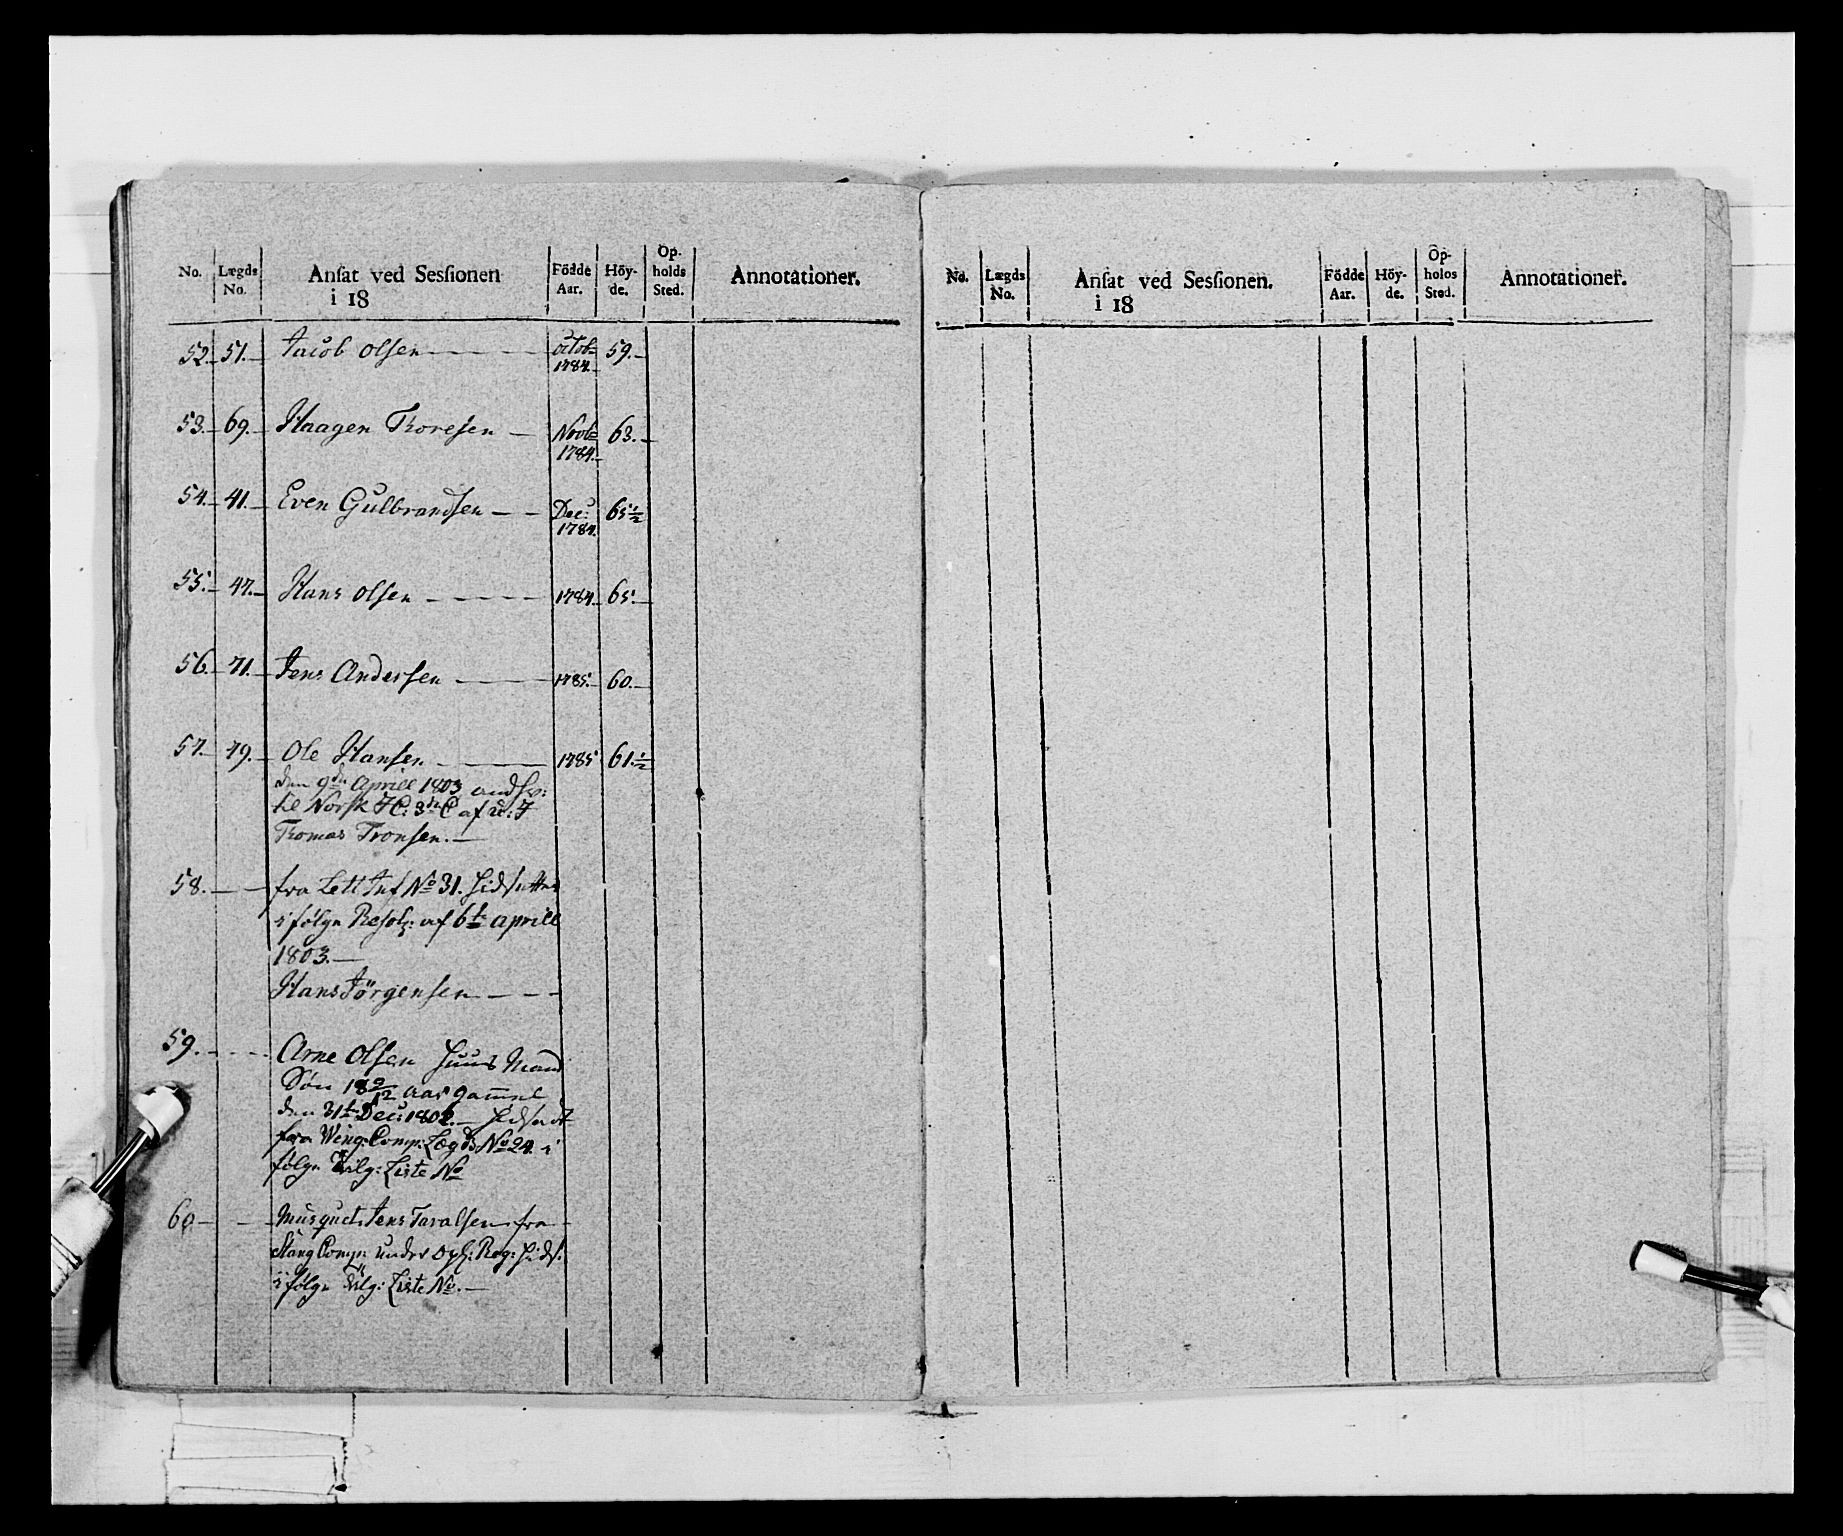 No. Lægds No. Ansat ved Sessionen i 18 Födde Aar. Höy- de. Op- holds Sted. Annotationer.
52. 51. Jacob Olsen Octob 1784. 59.
53. 69. Haagen Thoresen Novb 1784. 63.
54. 41. Even Gulbrandsen Dec: 1784. 65 1/2
55. 47. Hans Olsen 1784. 65.
56. 71. Jens Andersen 1785. 60.
57. 49. Ole Hansen 1785 61. 1/2
den 9de Aprill 1803
til Norsk J C: 3de C af
Thomas Tronsen.
58. fra Lett Inf No 31. hidsatte
i følge Resol: af 6te Aprill
1803.
Hans Jörgensen
59. Arne Olsen Huus Mand
Sön 18 9/12 aar gammel
den 31te Dec: 1802. hidsadt
fra Wing: Comp: Lægds No 24. i
følge Liste No
60 Musquet: Jens Taralsen fra
Stang Comp: under Opl: Reg: hids:
i følge Liste No.
No. Lægds No. Ansat ved Sessionen. i 18 Födde Aar. Höy- de. Op- holds Sted. Annotationer.